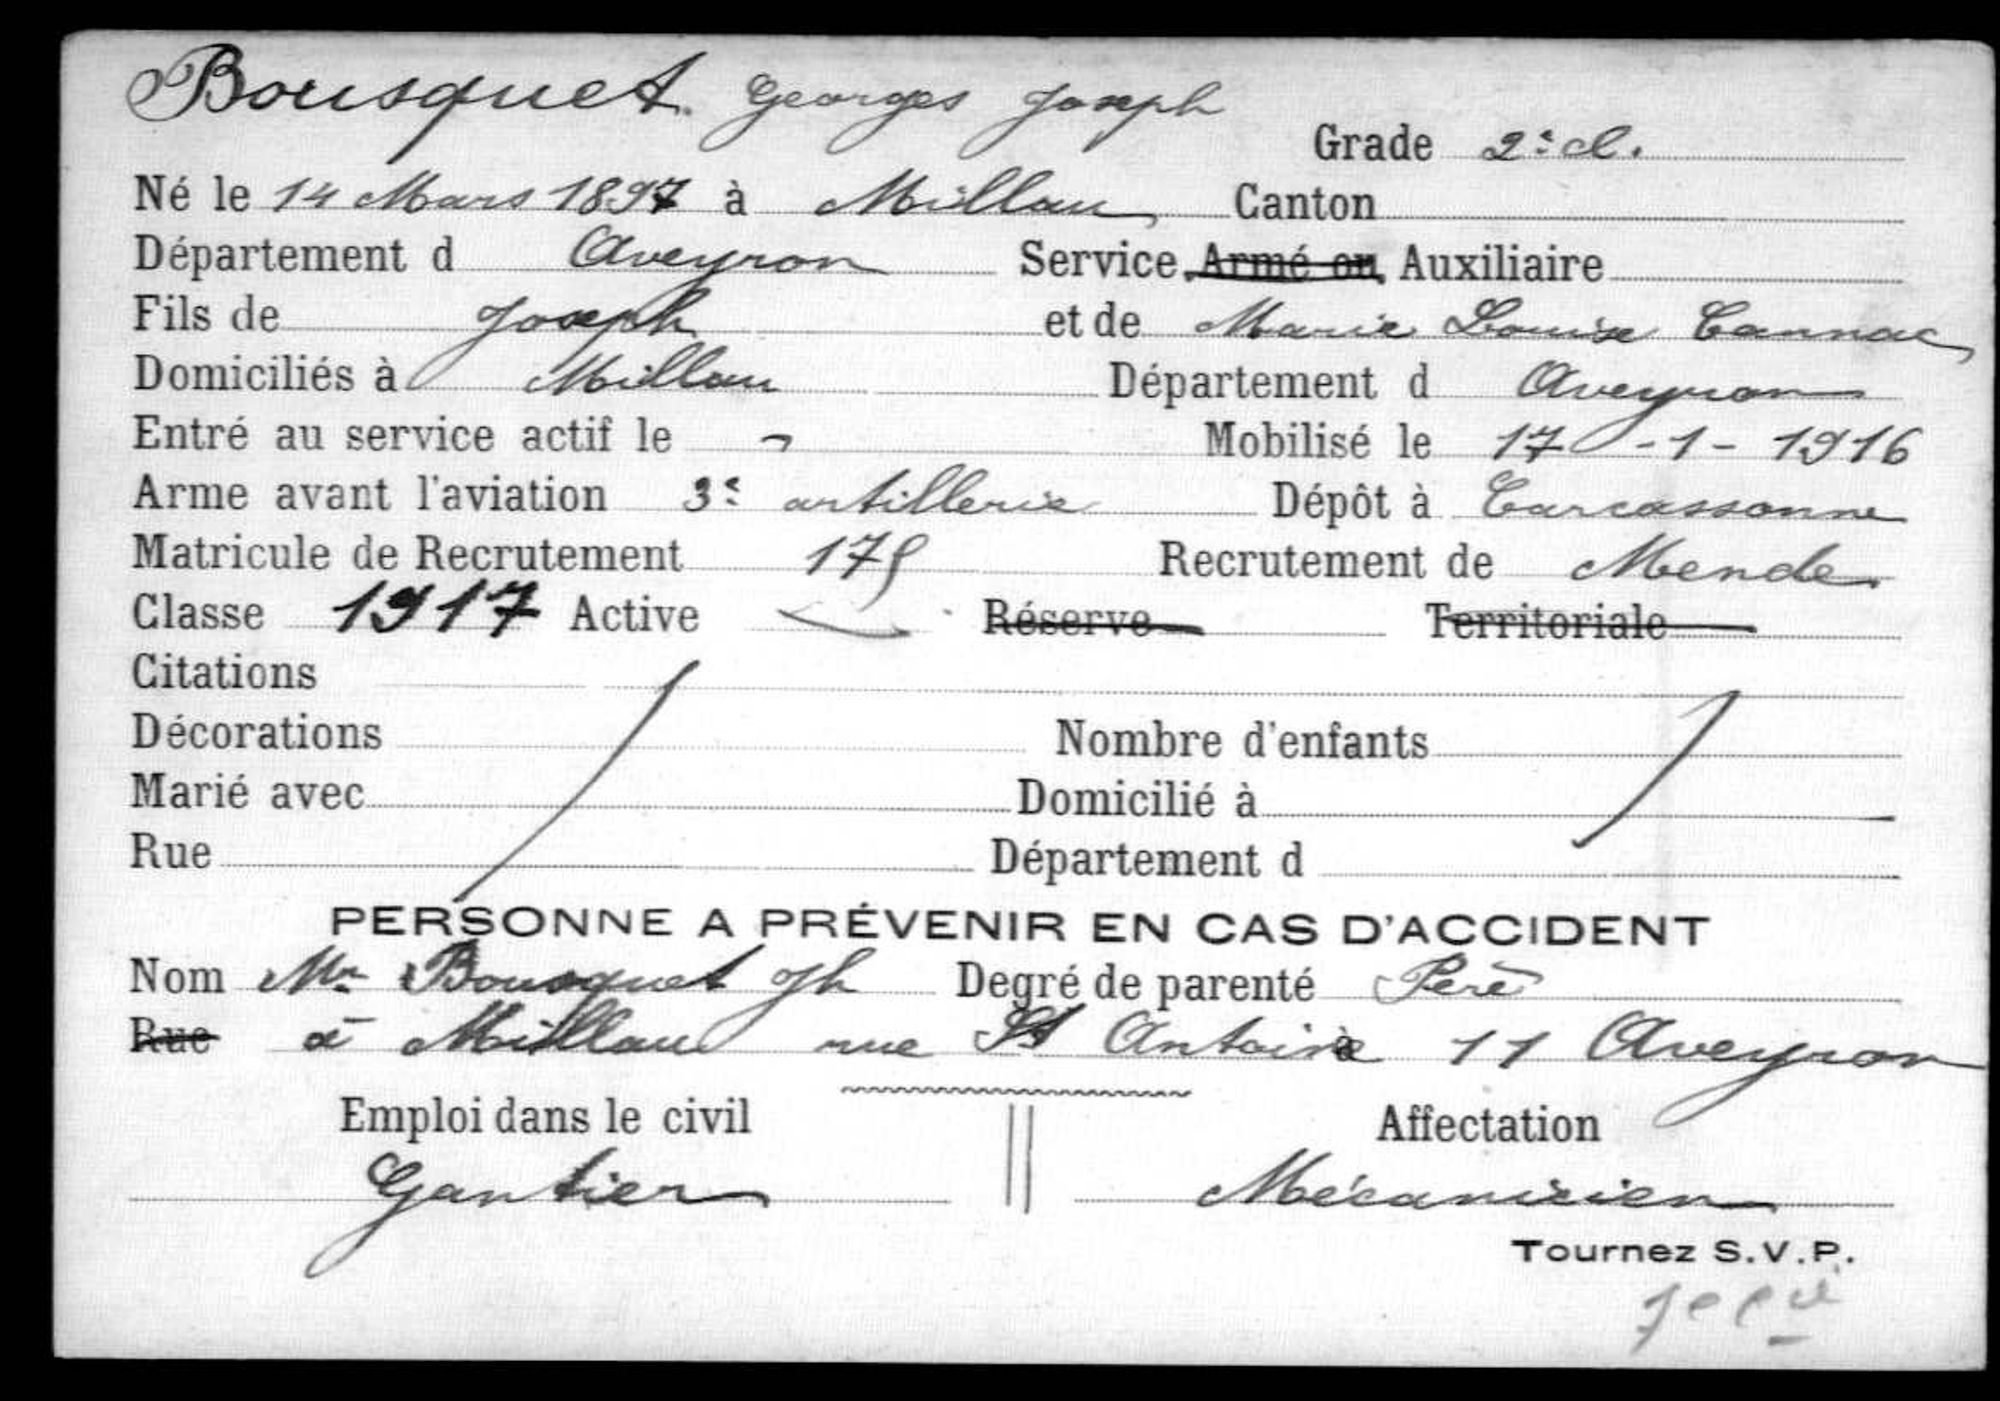 Bousquet Georges Joseph
Grade 2e cl.
Né le 14 Mars 1897 à Millau Canton
Département d Aveyron Service Armé ou Auxiliaire
Fils de Joseph et de Marie Louise Cannac
Domiciliés à Millau Département d Aveyron
Entré au service actif le Mobilisé le 17-1-1916
Arme avant l'aviation 3e artillerie Dépôt à Carcassonne
Matricule de Recrutement Recrutement de Mende
Classe 1917 Active Réserve Territoriale
Citations
Décorations Nombre d'enfants
Marié avec Domicilié à
Rue Département d
PERSONNE A PRÉVENIR EN CAS D'ACCIDENT
Nom Mr Bousquet Jh Degré de parenté Père
Rue à Millau rue St Antoine 11 Aveyron
Emploi dans le civil Affectation
Gantier Mécanicien
Tournez S.V.P.